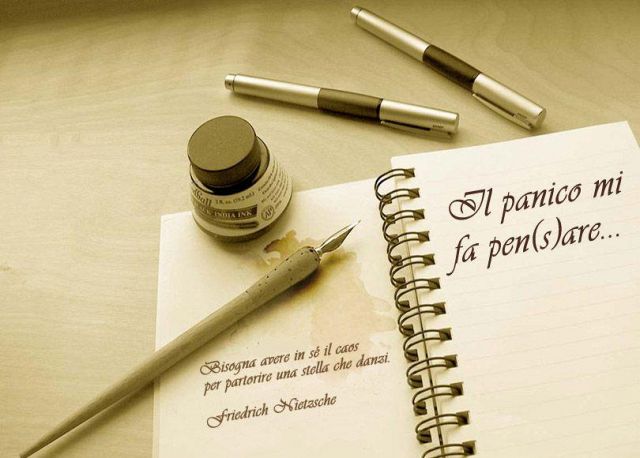 Il panico mi
fa pen(s)are...
Bisogna avere in sé il caos
per partorire una stella che danzi.
Friedrich Nietzsche
1 fl. oz. (29.5 ml)
INDIA INK